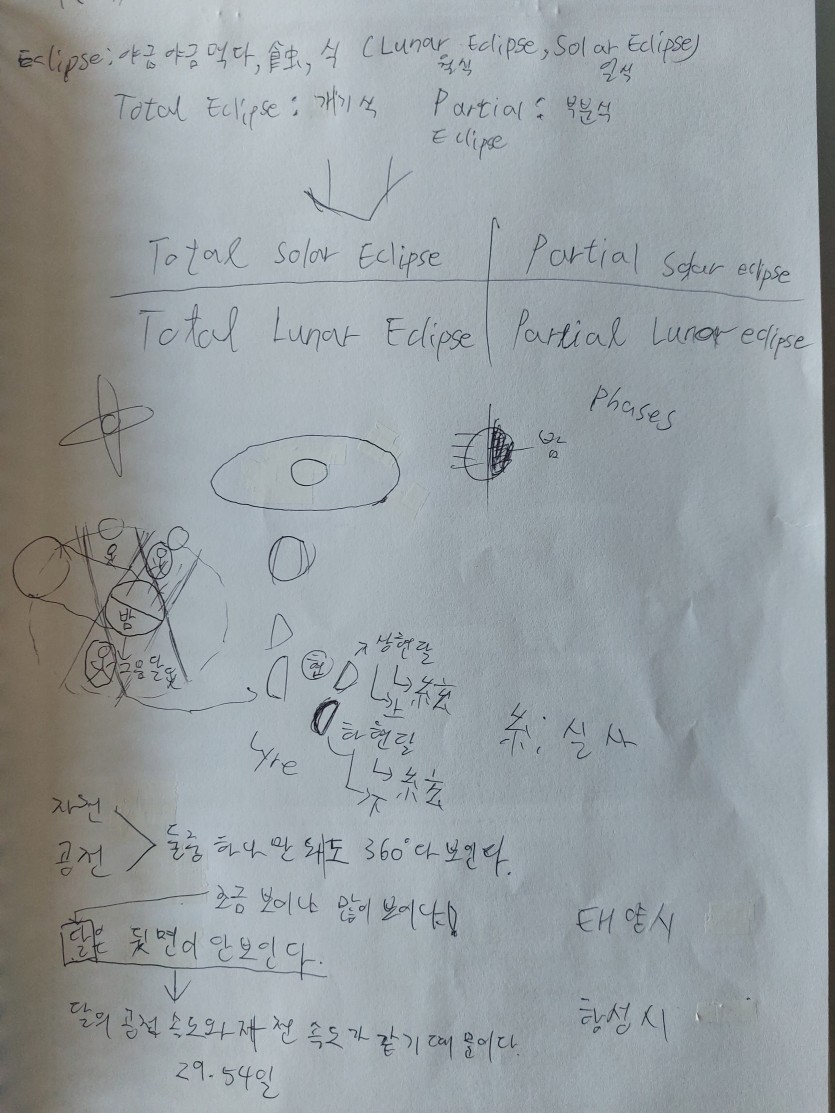 Eclipse: 야금야금 먹다, 蝕, 식 (Lunar Eclipse, Solar Eclipse)
월식 일식
Total Eclipse: 개기식 Partial Eclipse: 부분식
Total Solar Eclipse Partial Solar eclipse
Total Lunar Eclipse Partial Lunar eclipse
Phases
밤
밤
그믐달
현
상현달
上 弦
하현달
下 弦
Lyre
糸: 실 사
자전
공전
둘중 하나만 돼도 360°다 보인다.
조금 보이냐 많이 보이냐!
달은 뒷면이 안보인다.
태양시
달의 공전 속도와 자전 속도가 같기 때문이다.
항성시
29.54일